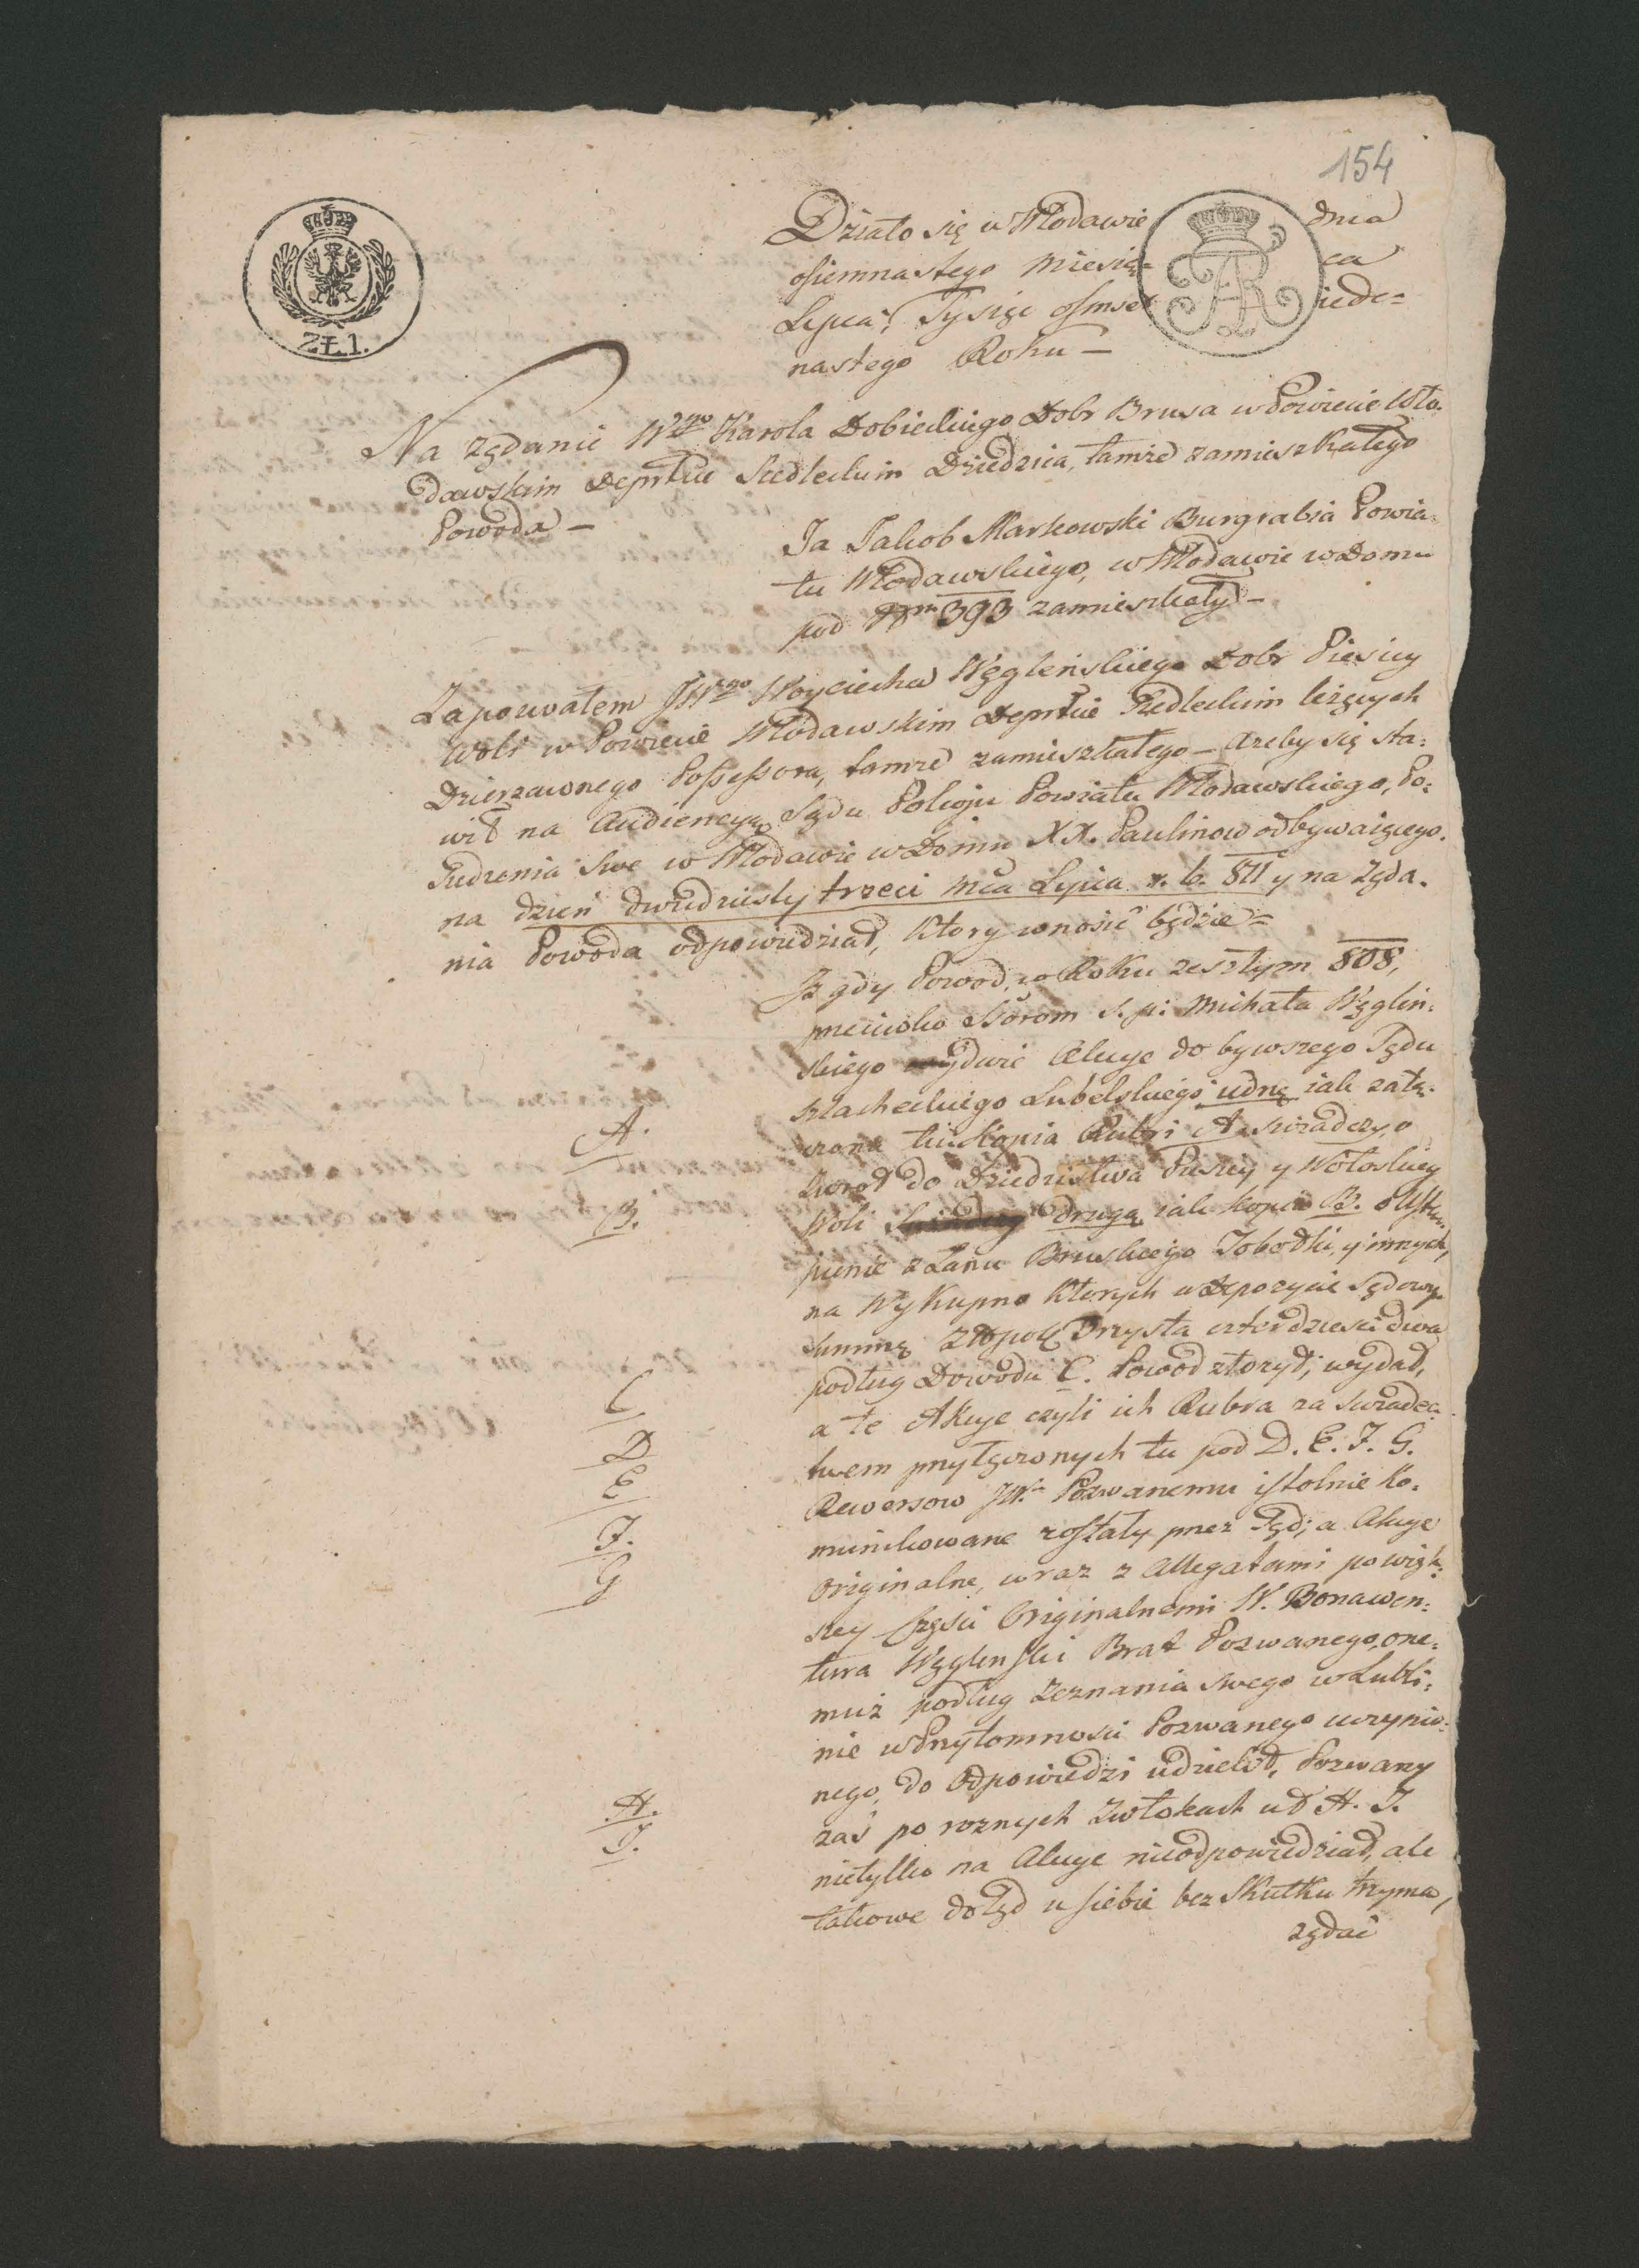 154
ZŁ.1.
Działo się w Włodawie dnia
osiemnastego Miesią= ca
Lipca, Tysiąc osmset iede=
nastego Roku —
Na żądanie Wgo Karola Dobieckiego Dobr Brusa w Powiecie Wło=
dawskim Deprtcie Siedleckim Dziedzica, tamże zamieszkałego
Powoda —
Ja Jakob Markowski Burgrabia Powia=
tu Włodawskiego, w Włodawie w Domu
pod Nrm 393 zamieszkały —
Zapozwałem JWgo Woyciecha Węgleńskiego Dobr Piesiey
Woli w Powiecie Włodawskim Deprtcie Siedleckim leżących
Dzierzawnego Possessora, tamże zamieszkałego — Azeby się sta=
wił na Audiencyą Sądu Pokoju Powiatu Włodawskiego, Po=
siedzenia swe w Włodawie w Domu XX. Paulinow odbywaiącego
na dzień dwudziesty trzeci mca Lipca r. b. 811 y na żąda=
nia Powoda odpowiedział, ktory wnosić będzie =
Iż gdy Powod, w Roku zeszłym 808,
przeciwko Ssorom s. p. Michała Węgleń=
skiego dwie Akcye do bywszego Sądu
szlacheckiego Lubelskiego iednę iak załą=
czona tu kopia Rubri A. swiadczy, o
A.
zwrot do Dziedzictwa Pusczy y Wołoskiey
Woli drugą iak kopia B. o Ustą=
B.
pienie z Łanu Bruskiego Sobodki, y innych,
na wykupno ktorych w Depozycie Sądowy
summę Złopol. Trzysta czterdziesci dwa
podług Dowodu C. Powod złozył, wydał,
C
a te Akcye czyli ich Rubra za swiadec=
twem przyłączonych tu pod D. E. F. G.
D
E
Rewersow JW. Pozwanemu istotnie ko=
munikowane zostały przez Sąd; a Akcye
F.
Originalne, wraz z Allegatami po więk=
G
szey części Originalnemi W. Bonawen=
tura Węgleński Brat Pozwanego, one=
muż podług zeznania swego w Lubli=
nie w Przytomnosci Pozwanego uczynio=
nego, do Odpowiedzi udzielił, Pozwany
zaś po roznych zwłokach ut H. I.
H.
I.
nietylko na Akcye nieodpowiedział, ale
takowe dotąd u siebie bez skutku trzyma,
żądać